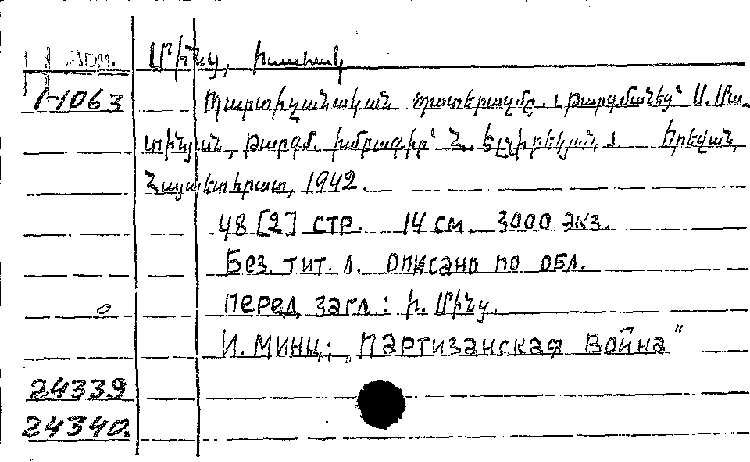 Մինց, Իսահակ
1-1063 Պարտիզանական պատերազմը. Թարգմանեց՝ Ս. Մա-
տինյան, թարգմ. խմբագիր՝ Հ. Երևան,
Հայպետհրատ, 1942.
48 [2] стр. 14 см. 3000 экз.
Без тит. л. описано по обл.
перед загл: Ի. Մինց.
И. Минц; „Партизанская война"
24339
24340.